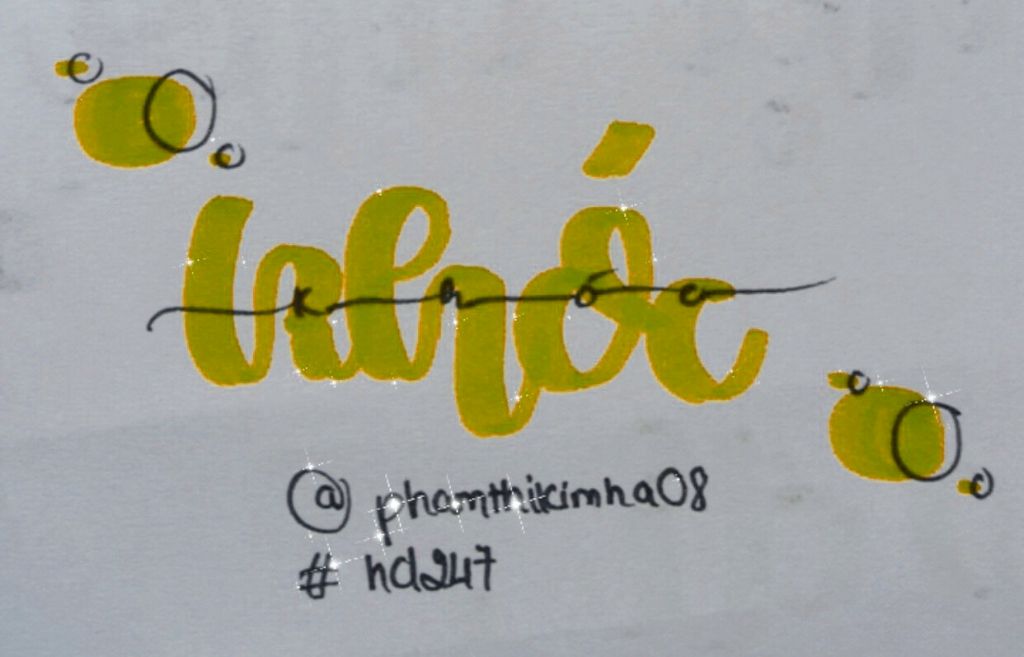 khóc
k h ó c
@ phamthikimha08
# hd247